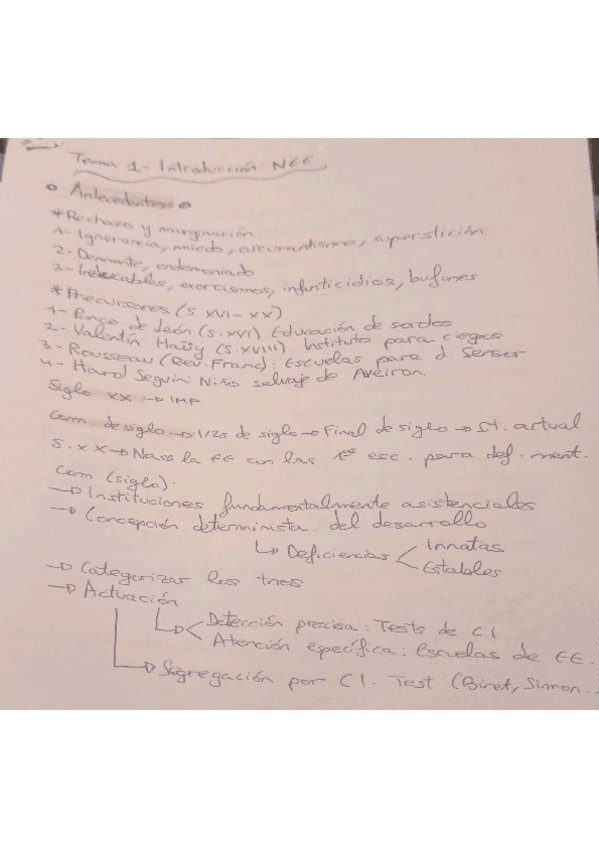 Tema 1- Introducción NEE
Antecedentes
*Rechazo y marginación
1- Ignorancia, miedo, oscurantismo, superstición.
2- Demente, endemoniado
3- exorcismos, infanticidios, bufones
*Precursores (s XVI-XX)
1- Ponce de León (s.XVI) Educación de sordos.
2- Valentín Haüy (s.XVIII). Instituto para ciegos
3- Rousseau (Rev. Franc): Escuelas para d. Sensor
4- Itard Seguin: Niño salvaje de Aveiron.
Siglo XX → IMP
Com. de siglo → 1/2s de siglo → Final de siglo → St. actual
S. XX → Nace la EE con las 1as esc. para def. ment.
Com. (siglo).
→ Instituciones fundamentalmente asistenciales
→ Concepción determinista del desarrollo
↳ Deficiencias < Innatas
Estables
→ Categorizar los tnos
→ Actuación
↳ < Detección precisa: Tests de CI
Atención epecífica: Escuelas de EE.
→ Segregación por CI. Test (Binet, Simon...